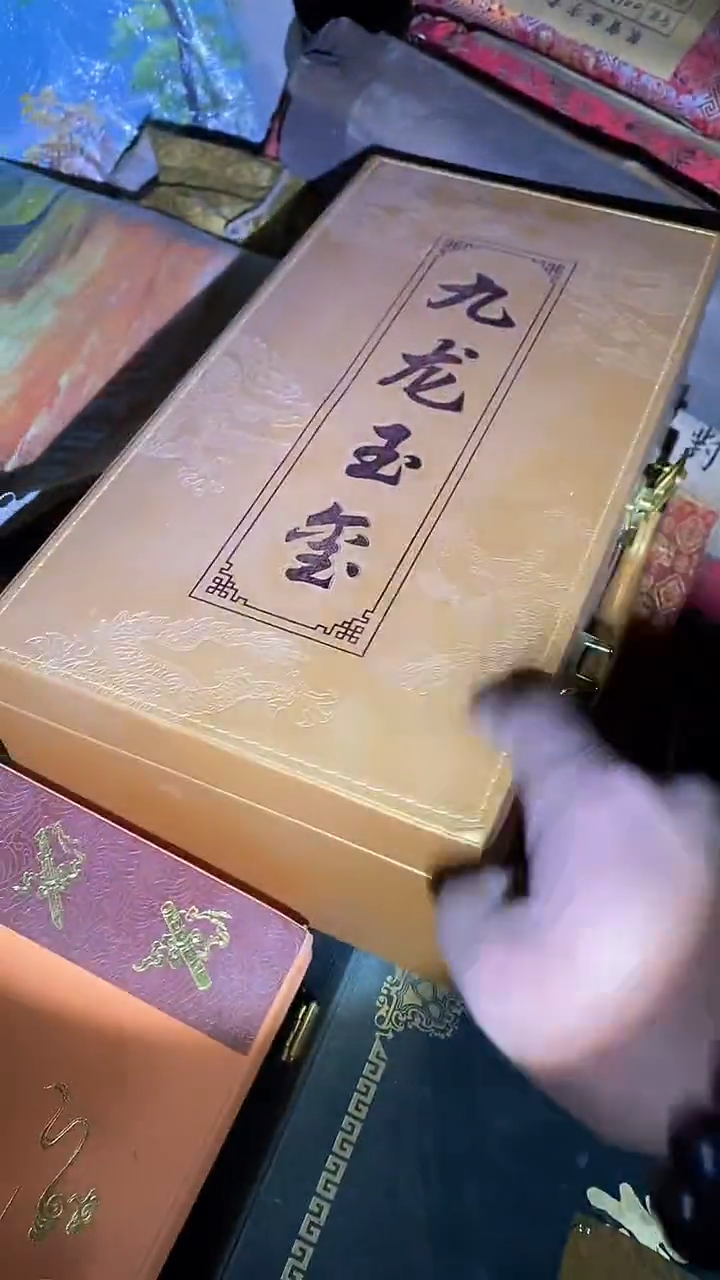 九龙玉玺